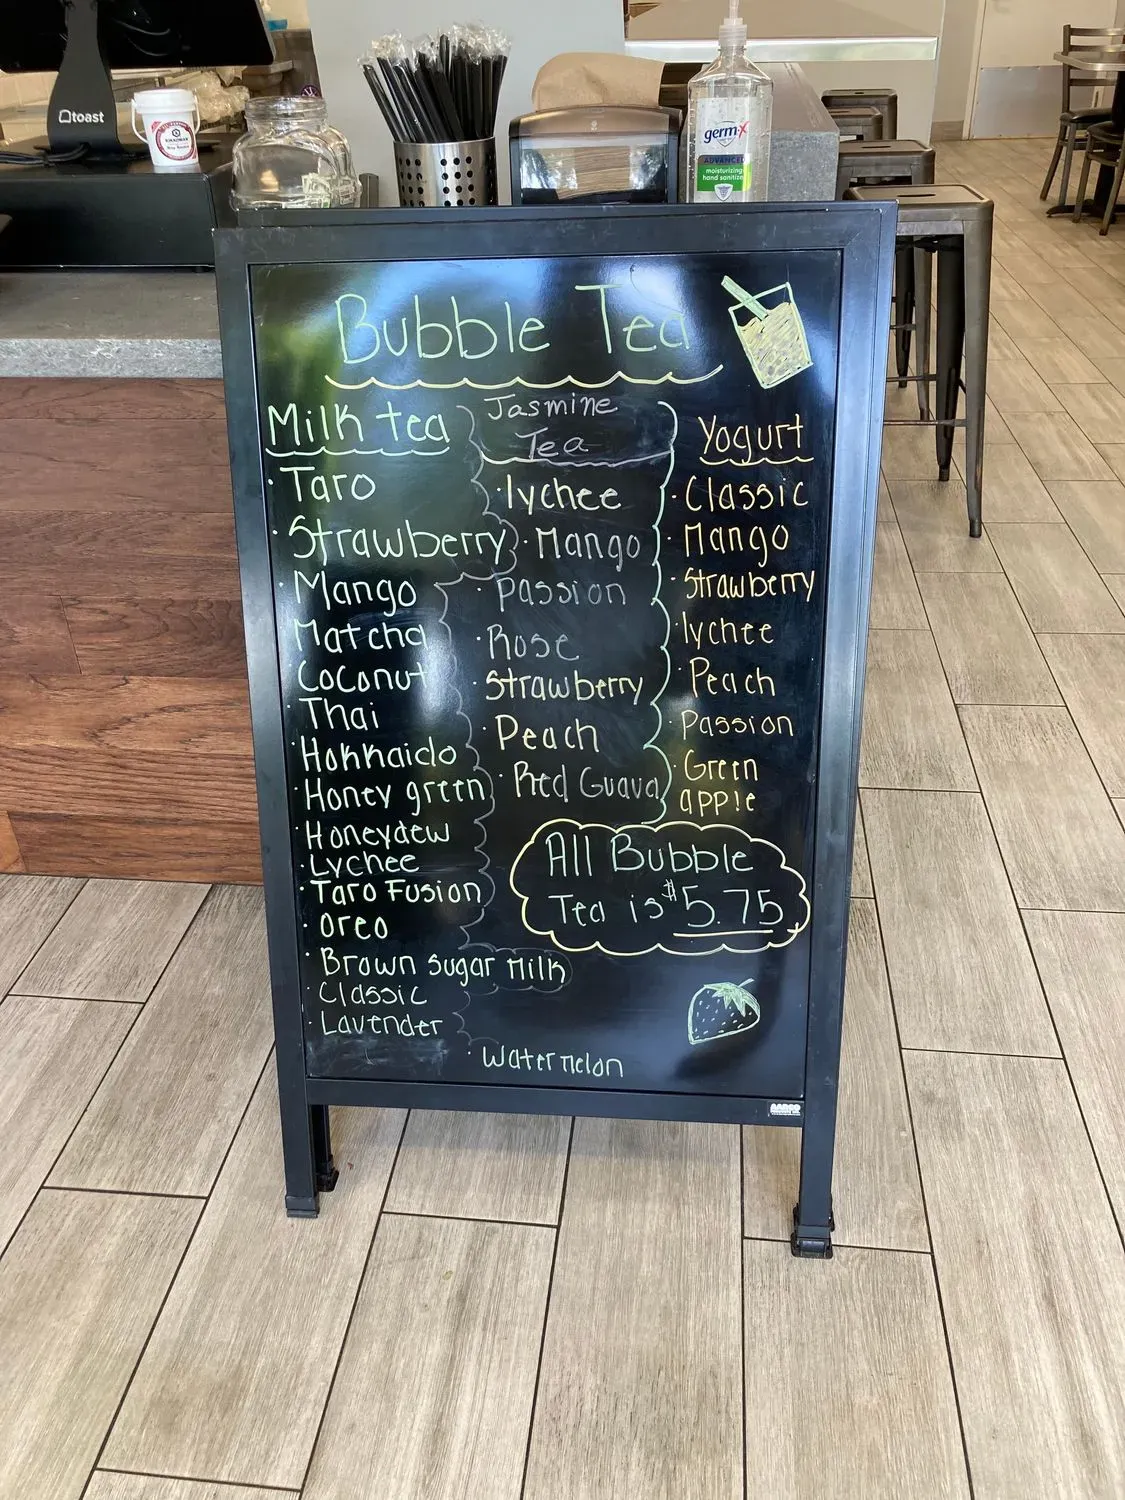 toast
germ-x
ADVANCED
moisturizing
hand sanitizer
Bubble Tea
Milk tea
· Taro
· Strawberry
· Mango
Matcha
Coconut
Thai
· Hokkaido
· Honey green
· Honeydew
· Lychee
· Taro Fusion
· Oreo
· Brown sugar Milk
· Classic
· Lavender
Jasmine
Tea
· lychee
· Mango
· Passion
· Rose
· Strawberry
· Peach
· Red Guava
· Watermelon
Yogurt
· Classic
· Mango
· Strawberry
· lychee
· Peach
· Passion
· Green
apple
All Bubble
Tea is $5.75